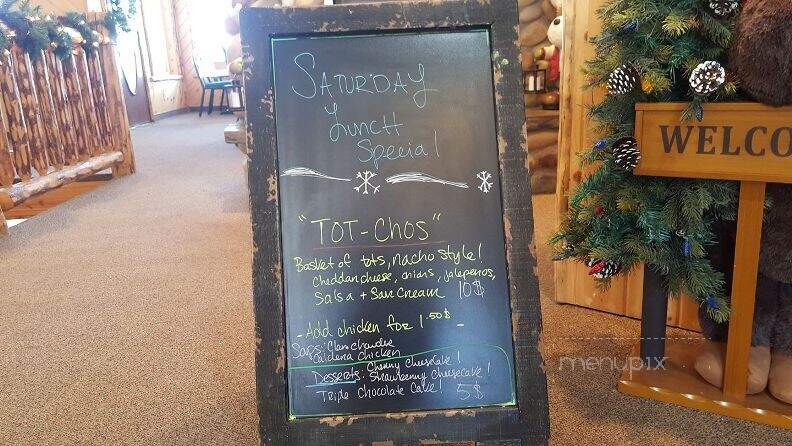 SATURDAY
LUNCH
Special
"TOT-CHOS"
Basket of tots, nacho style!
Cheddar cheese, onions, jalepenos,
Salsa + Sour Cream 10$
- Add chicken for 1.50$ -
Soups: Clam chowder
Caldera chicken
Desserts: Cherry Cheesecake!
Strawberry cheesecake!
Triple Chocolate Cake! 5$
WELCO
menupix